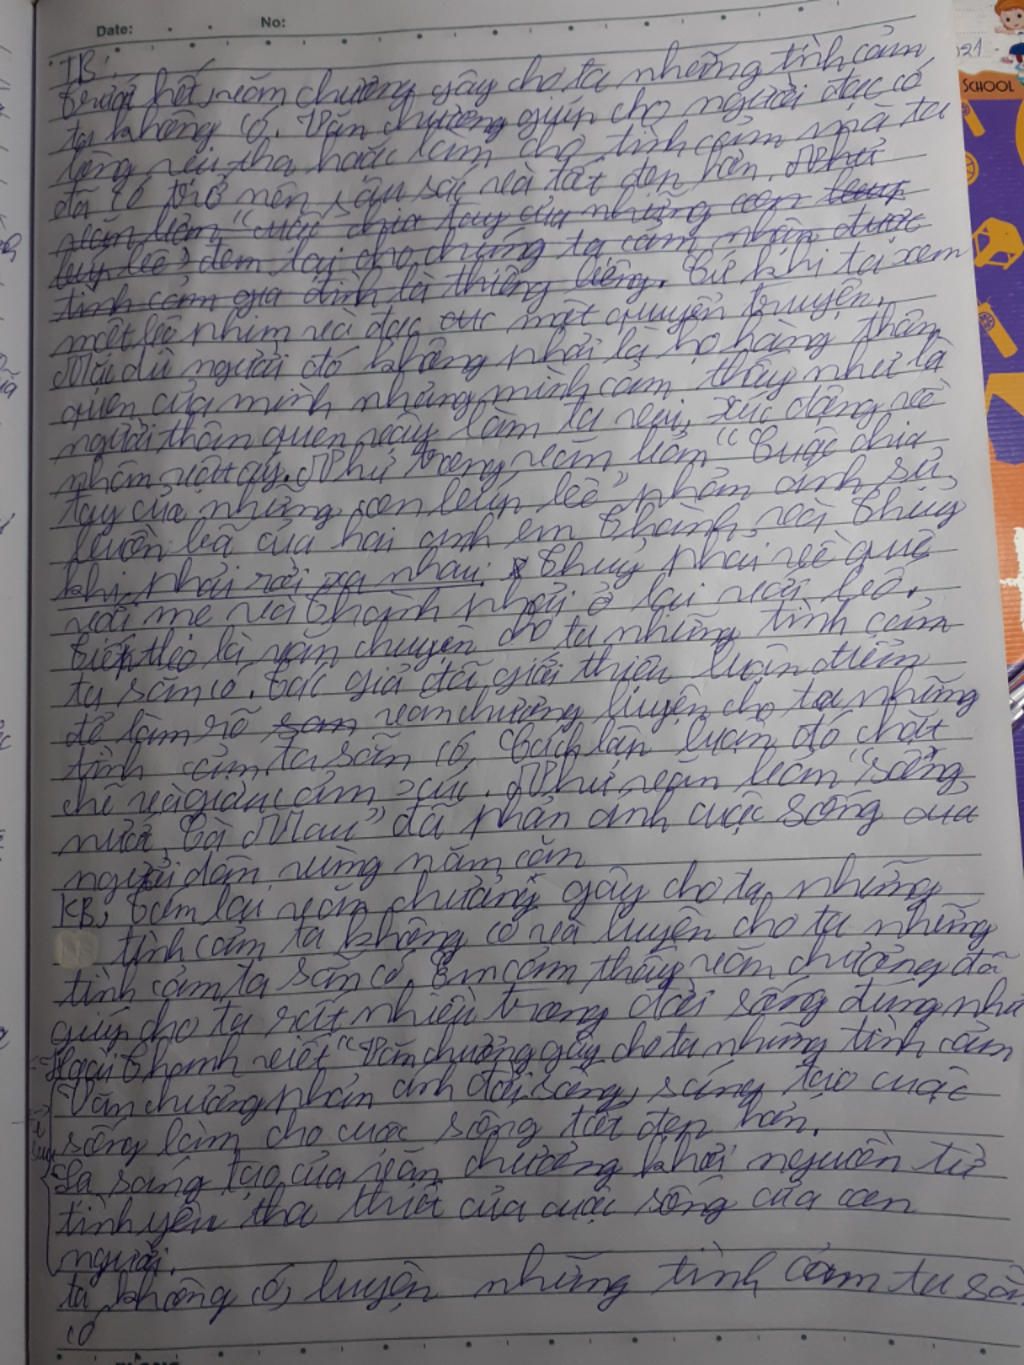 Date: No:
TB:
Trước hết, văn chương gây cho ta những tình cảm
ta không có. Văn chương giúp cho người đọc có
lòng vị tha hoặc làm cho tình cảm mà ta
đã có trở nên sâu sắc và tốt đẹp hơn. Như
văn bản "cuộc chia tay của những con
búp bê" đem lại cho chúng ta cảm nhận được
tình cảm gia đình là thiêng liêng. Cứ khi ta xem
một bộ phim và đọc một quyển truyện,
Mặc dù người đó không phải là họ hàng thân
quen của mình nhưng mình cảm thấy như là
người thân quen vậy làm ta vui, xúc động về
nhân vật ấy. Như trong văn bản "Cuộc chia
tay của những con búp bê" phản ánh sự
buồn bã của hai anh em Thành và Thủy
khi phải rời xa nhau. Thủy phải về quê
với mẹ và Thành phải ở lại với bố.
Tiếp theo là văn chuyện cho ta những tình cảm
ta sẵn có. Tác giả đã giới thiệu luận điểm
để làm rõ văn chương luyện cho ta những
tình cảm ta sẵn có, Cách lập luận đó chặt
chẽ và giàu cảm xúc. Như văn bản "sông
nước Cà Mau" đã phản ánh cuộc sống của
người dân vùng năm căn
KB: Tóm lại văn chương gây cho ta những
tình cảm ta không có và luyện cho ta những
tình cảm ta sẵn có. Em cảm thấy văn chương đã
giúp cho ta rất nhiều trong đời sống đúng như
Hoài Thanh viết "Văn chương gây cho ta những tình cảm
Văn chương phản ánh đời sống, sáng tạo cuộc
sống làm cho cuộc sống tốt đẹp hơn.
sáng tạo của văn chương khởi nguồn từ
tình yêu tha thiết của cuộc sống của con
người.
ta không có, luyện những tình cảm ta sẵn
có
021
SCHOOL